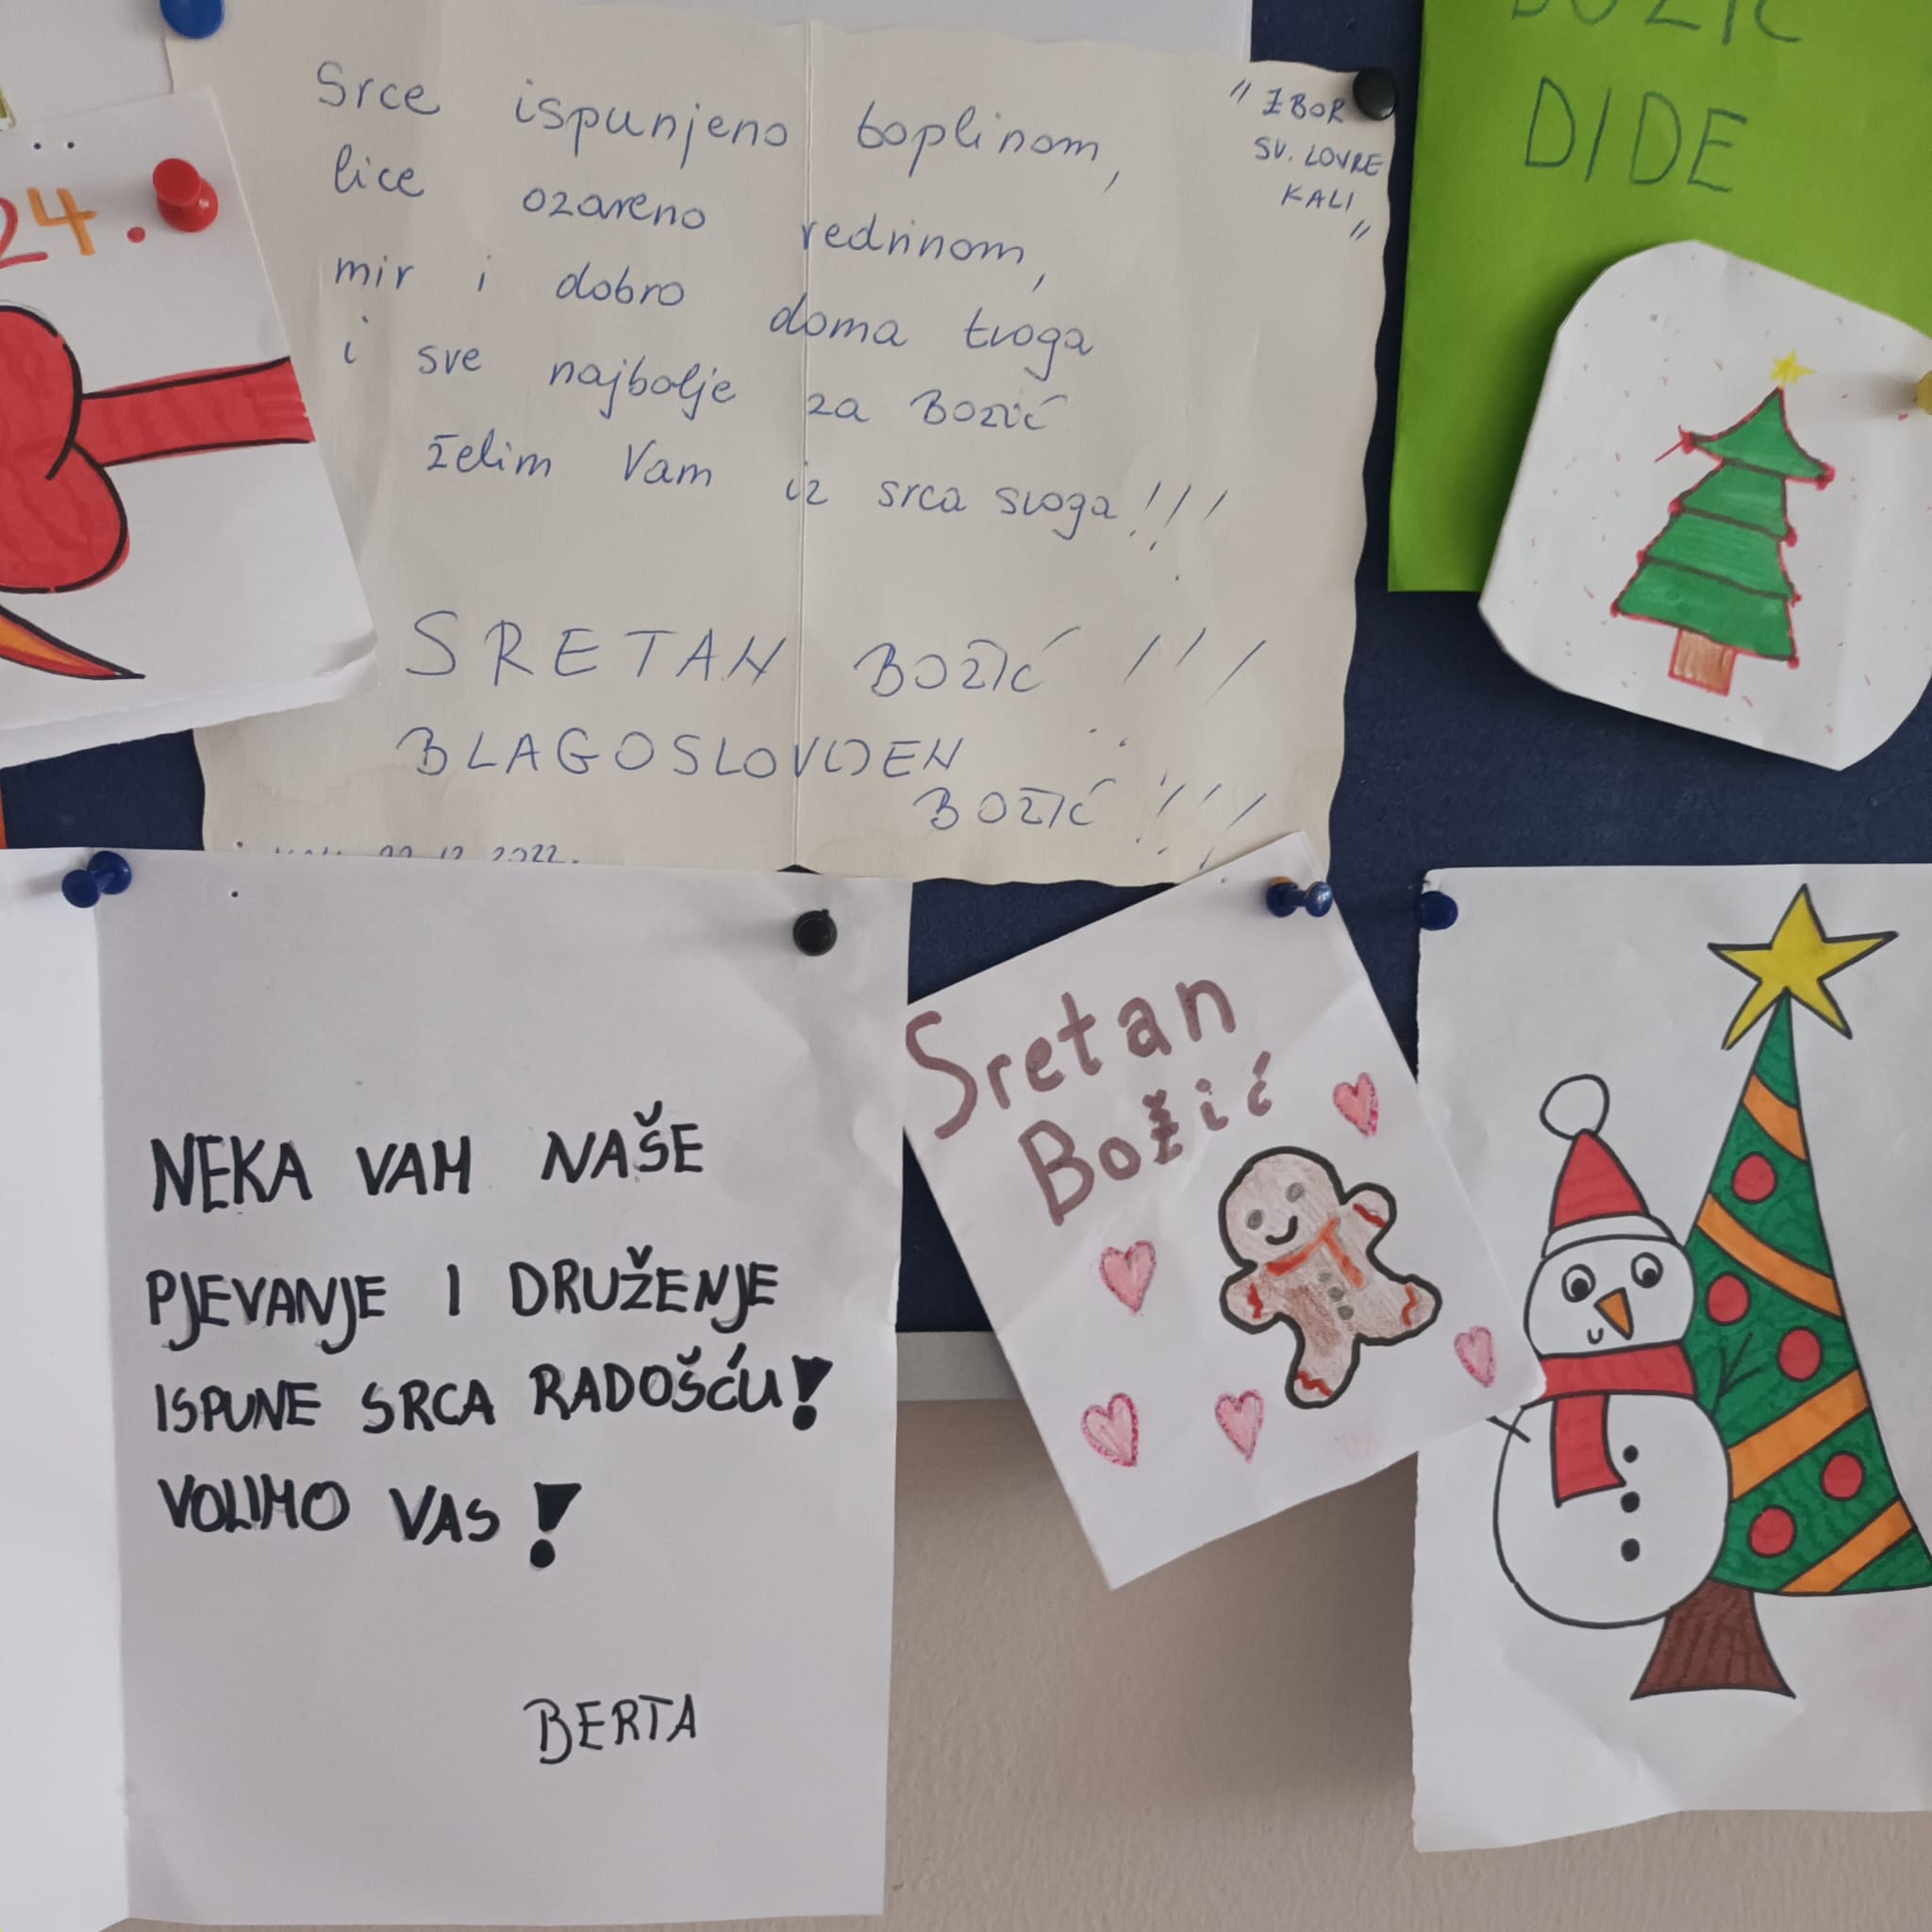 Srce ispunjeno toplinom,
lice ozareno vedrinom,
mir i dobro doma tvoga
i sve najbolje za Božić
želim Vam iz srca svoga!!!
SRETAN BOŽIĆ !!!
BLAGOSLOVLJEN
BOŽIĆ !!!
22.12.2022.
"ZBOR
SV. LOVRE
KALI"
BOŽIĆ
DIDE
24.
NEKA VAM NAŠE
PJEVANJE I DRUŽENJE
ISPUNE SRCA RADOŠĆU!
VOLIMO VAS!
BERTA
Sretan
Božić